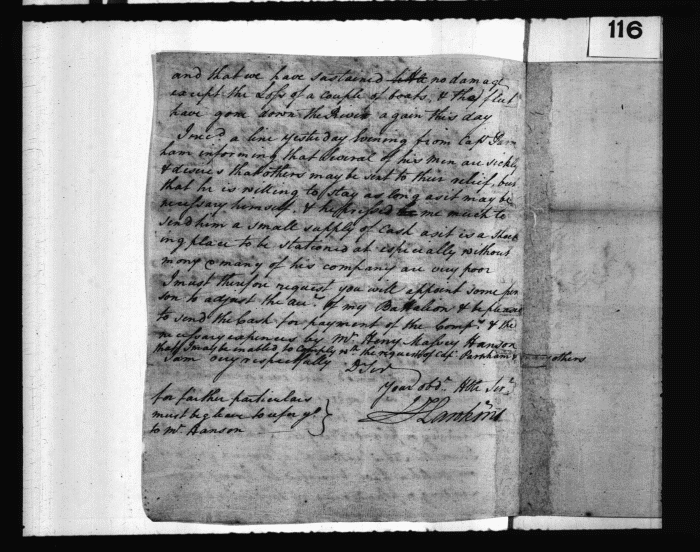 116
and that we have sustained no damage
except the Loss of a couple of boats, & the fleet
have gone down the River again this day
I rec'd a line yesterday Evening from Capt Parn
ham informing that several of his men are sickly
& desires that others may be sent to their relief, but
that he is willing to stay as long as it may be
necessary himself, & he pressed me much to
send him a small supply of Cash as it is a shock
ing place to be stationed at especially without
mony & many of his company are very poor
I must therefore request you will appoint some per
son to adjust the accts of my Battalion & be pleased
to send the Cash for payment of the Compy & the
necessary expences by Mr Henry Massey Hanson
that I may be enabled to Comply wth the request of Capt Parnham & others
I am very respectfully Dr Sir
Your obdt Hble Servt
J Dankins
for farther particulars
must beg leave to refer yo
to Mr Hanson